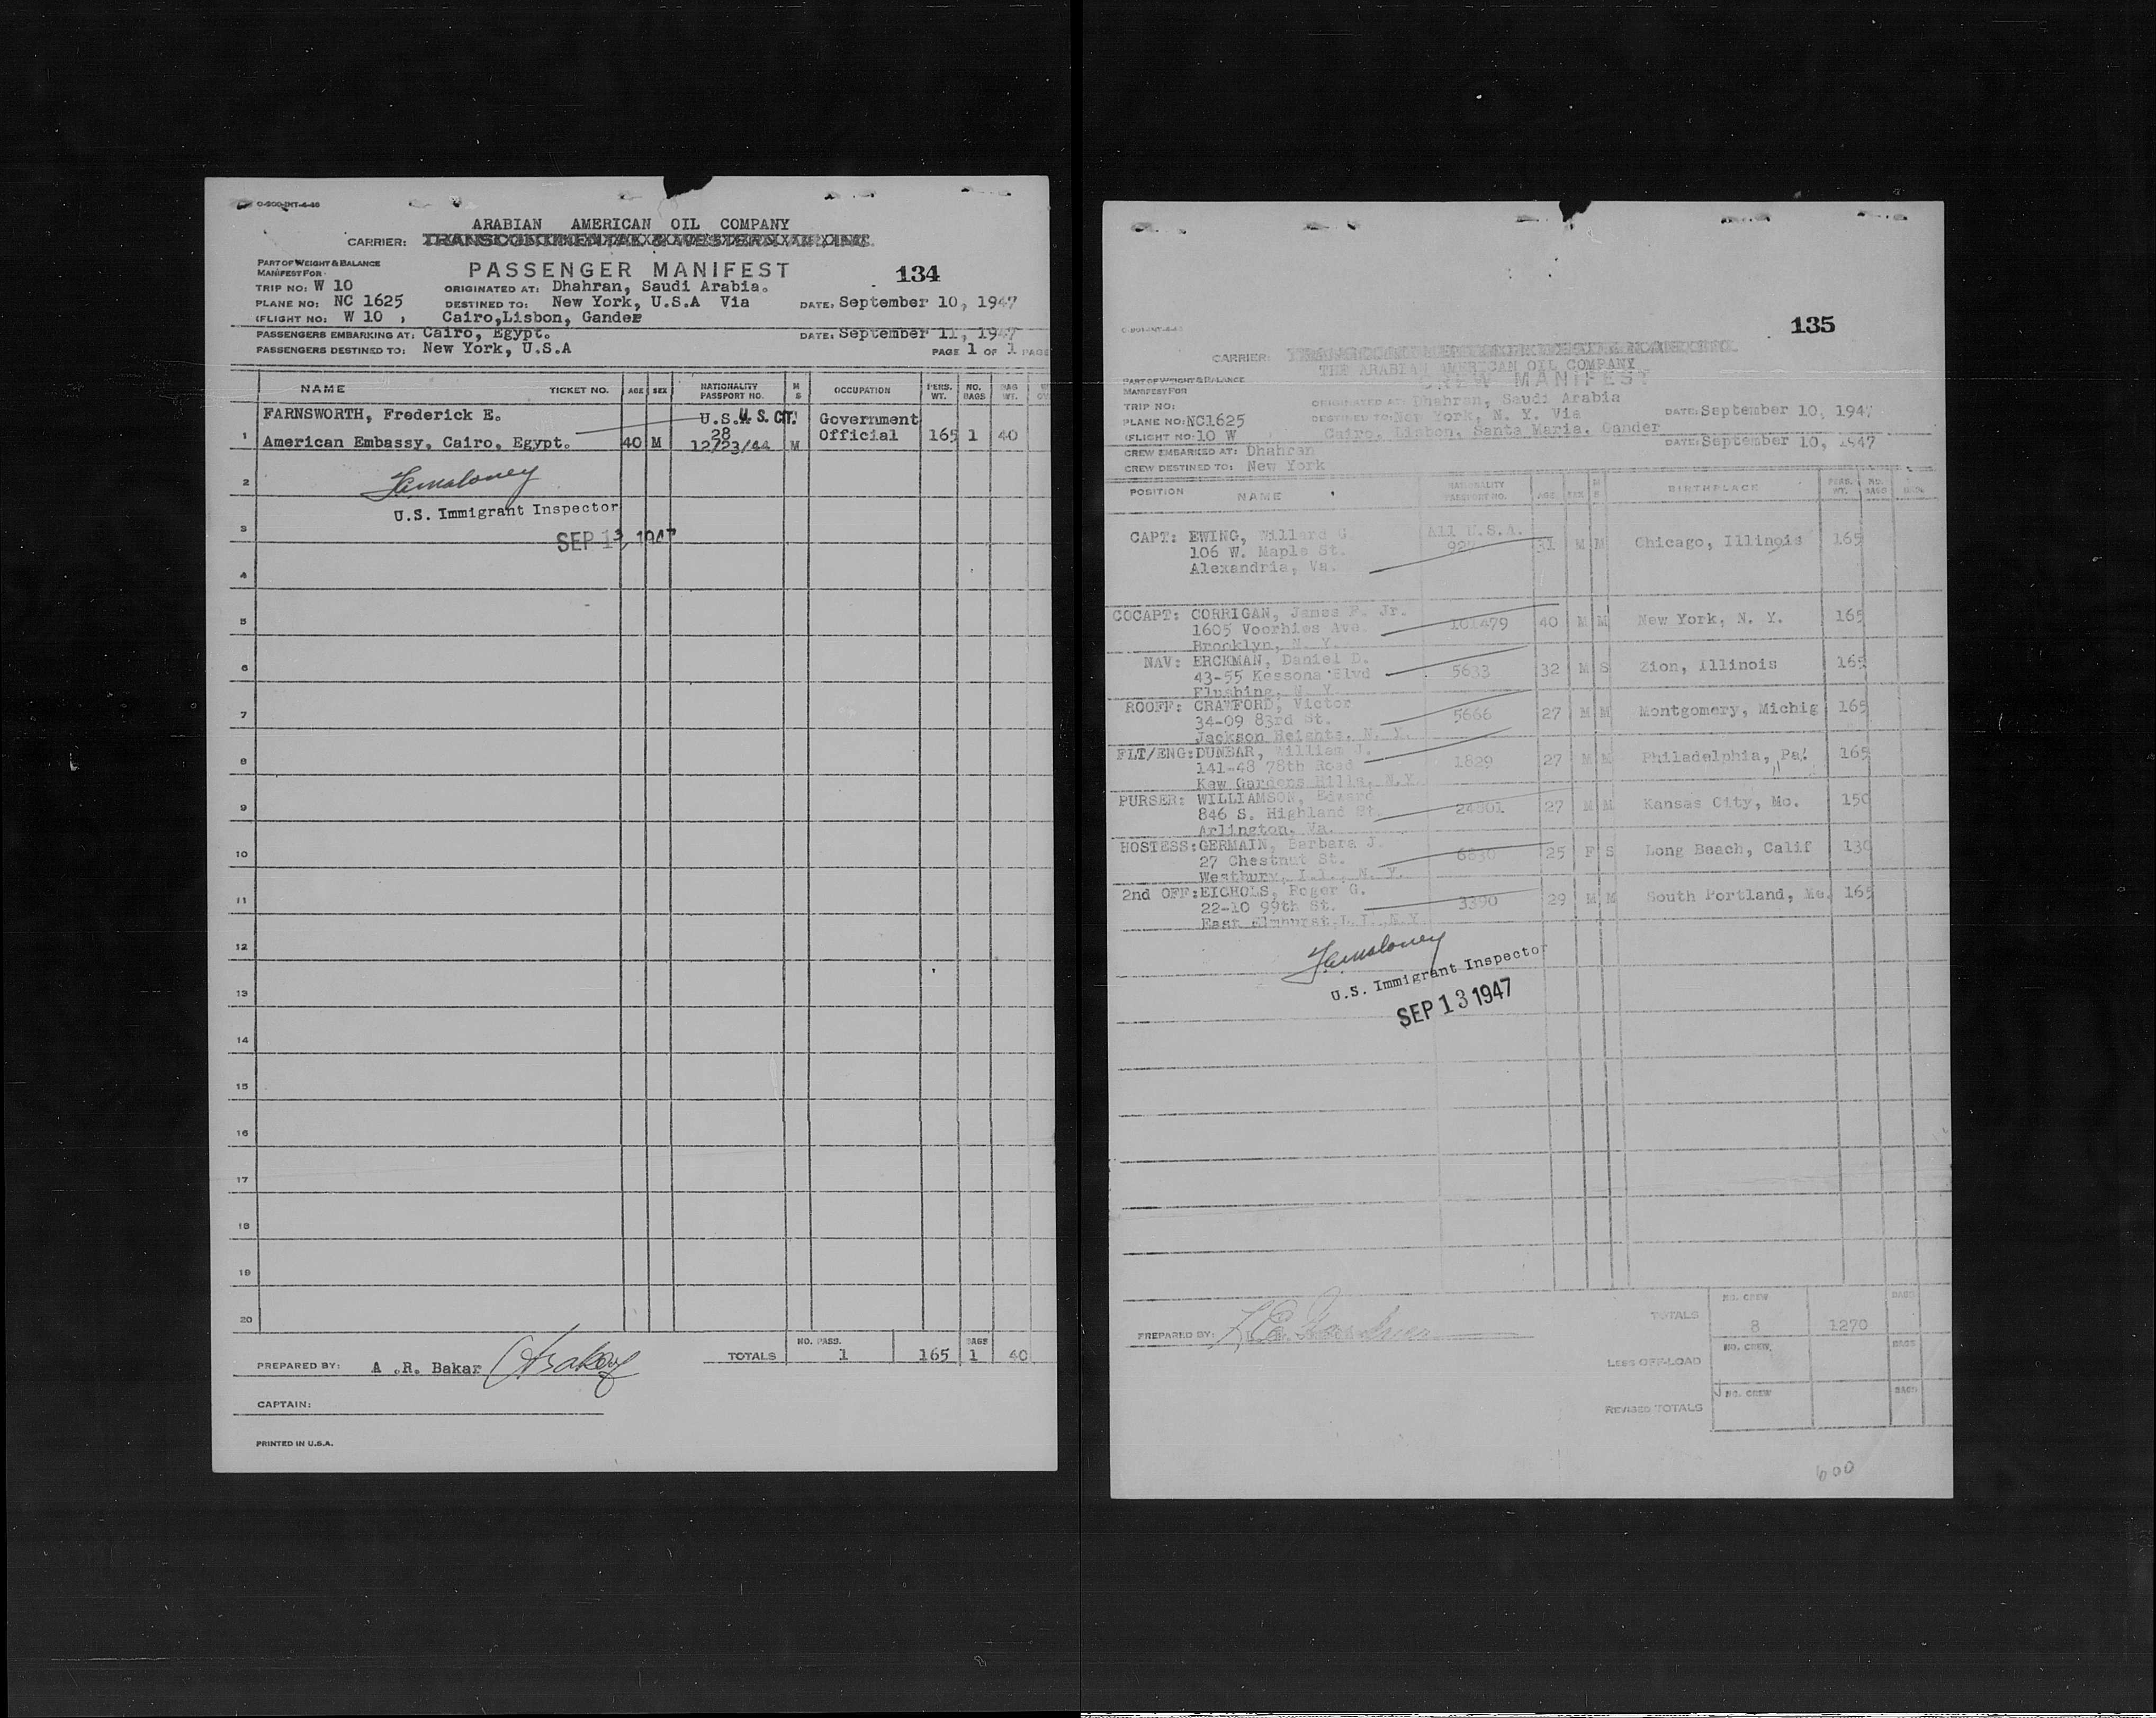 O-900-INT-4-46
ARABIAN AMERICAN OIL COMPANY
CARRIER: TRANSCONTINENTAL & WESTERN AIR, INC.
PART OF WEIGHT & BALANCE
MANIFEST FOR
PASSENGER MANIFEST 134
TRIP NO: W 10 ORIGINATED AT: Dhahran, Saudi Arabia.
PLANE NO: NC 1625 DESTINED TO: New York, U.S.A Via DATE: September 10, 1947
(FLIGHT NO: W 10 , Cairo,Lisbon, Gander
PASSENGERS EMBARKING AT: Cairo, Egypt. DATE: September 11, 1947
PASSENGERS DESTINED TO: New York, U.S.A PAGE 1 OF 1 PAGE
NAME TICKET NO. AGE SEX NATIONALITY PASSPORT NO. M S OCCUPATION PERS. WT. NO. BAGS BAG WT.
FARNSWORTH, Frederick E. U.S. U.S. CIT. Government
1 American Embassy, Cairo, Egypt. 40 M 28 12/23/44 M Official 165 1 40
2
U.S. Immigrant Inspector
3
SEP 13 1947
4
5
6
7
8
9
10
11
12
13
14
15
16
17
18
19
20
NO. PASS. BAGS
TOTALS 1 165 1 40
PREPARED BY: A .R. Bakar
CAPTAIN:
PRINTED IN U.S.A.
135
CARRIER: TRANSCONTINENTAL & WESTERN AIR, INC.
THE ARABIAN AMERICAN OIL COMPANY
PART OF WEIGHT & BALANCE
MANIFEST FOR
CREW MANIFEST
TRIP NO: ORIGINATED AT: Dhahran, Saudi Arabia
PLANE NO: NC1625 DESTINED TO: New York, N. Y. Via DATE: September 10, 1947
(FLIGHT NO: 10 W Cairo, Lisbon, Santa Maria, Gander
CREW EMBARKED AT: Dhahran DATE: September 10, 1947
CREW DESTINED TO: New York
POSITION NAME NATIONALITY PASSPORT NO. AGE SEX M S BIRTHPLACE PERS. WT. NO. BAGS
CAPT: EWING, Willard G. All U.S.A.
106 W. Maple St. 31 M M Chicago, Illinois 165
Alexandria, Va.
COCAPT: CORRIGAN, James F. Jr.
1605 Voorhies Ave. 101479 40 M M New York, N. Y. 165
Brooklyn, N. Y.
NAV: ERCKMAN, Daniel D.
43-55 Kessona Blvd 5633 32 M S Zion, Illinois 165
Flushing, N. Y.
ROOFF: CRAWFORD, Victor
34-09 83rd St. 5666 27 M M Montgomery, Michig 165
Jackson Heights, N. Y.
FLT/ENG: DUNBAR, William J.
141-48 78th Road 1829 27 M M Philadelphia, Pa. 165
Kew Gardens Hills, N.Y.
PURSER: WILLIAMSON, Edward
846 S. Highland St. 24801 27 M M Kansas City, Mo. 150
Arlington, Va.
HOSTESS: GERMAIN, Barbara J.
27 Chestnut St. 6830 25 F S Long Beach, Calif 130
Westbury, L.I., N. Y.
2nd OFF: EICHOLS, Roger G.
22-10 99th St. 3390 29 M M South Portland, Me. 165
East Elmhurst, L.I., N.Y.
U.S. Immigrant Inspector
SEP 13 1947
NO. CREW BAGS
TOTALS 8 1270
PREPARED BY:
NO. CREW BAGS
LESS OFF-LOAD
NO. CREW BAGS
REVISED TOTALS
600